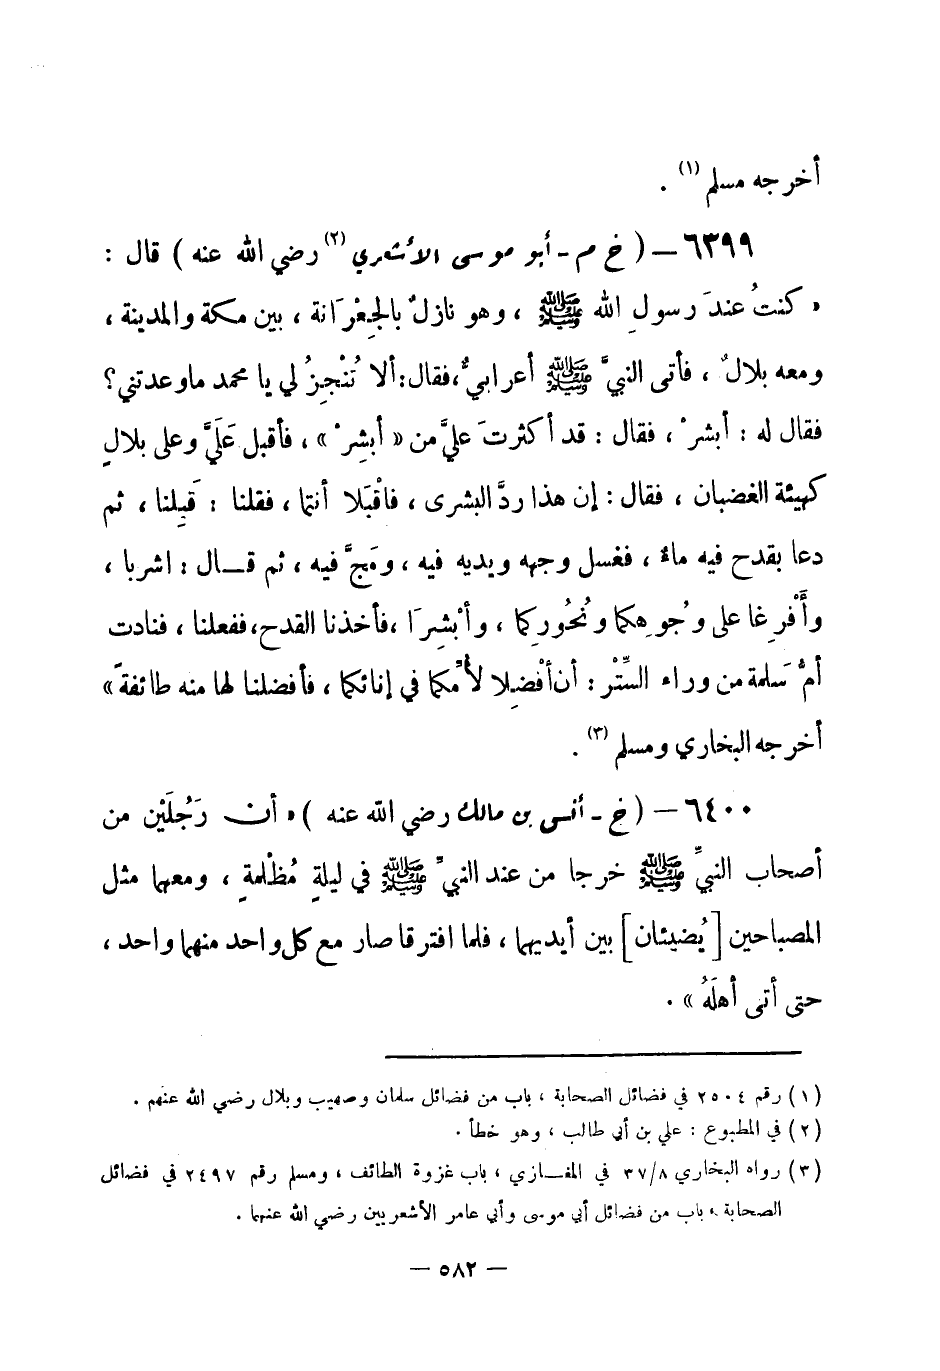 أخرجه مسلم (١) .
٦٣٩٩ – ( خ م - أبو موسى الأشعري (٢) رضي الله عنه ) قال :
« كنتُ عندَ رسولِ الله ﷺ ، وهو نازلٌ بالجِعْرَانة ، بين مكة والمدينة ،
ومعه بلالٌ ، فأتى النبيَّ ﷺ أعرابيٌّ،فقال:ألا تُنْجِزُ لي يا محمد ماوعدتني؟
فقال له : أبشرْ ، فقال : قد أكثرتَ عليَّ من « أبشِرْ » ، فأقبل عَلَيَّ وعلى بلالٍ
كهيئة الغضبان ، فقال : إن هذا ردَّ البشرى ، فاقْبَلا أنتما ، فقلنا : قَبِلنا ، ثم
دعا بقدح فيه ماء ، فغسل وجهه ويديه فيه ، ومَجَّ فيه ، ثم قــال : اشربا ،
وأَفْرِغا على وُجوهِكما ونُحُورِكما ، وأبْشِرَا ،فأخذنا القدح،ففعلنا ، فنادت
أمُّ سَلمة من وراء السِّتْر : أن أفْضِلا لأُمِّكما في إنائكما ، فأفضلنا لها منه طائفةً »
أخرجه البخاري ومسلم (٣) .
٦٤٠٠ – ( خ - أنس بن مالك رضي الله عنه ) « أن رَجُلَيْن من
أصحاب النبيِّ ﷺ خرجا من عند النبيِّ ﷺ في ليلةٍ مُظْلمةٍ ، ومعهما مثل
المصباحين [يُضيئان] بين أيديهما ، فلما افترقا صار مع كل واحد منهما واحد ،
حتى أتى أهلَهُ » .
(١) رقم ٢٥٠٤ في فضائل الصحابة ، باب من فضائل سلمان وصهيب وبلال رضي الله عنهم .
(٢) في المطبوع : علي بن أبي طالب ، وهو خطأ .
(٣) رواه البخاري ٣٧/٨ في المغــازي ، باب غزوة الطائف ، ومسلم رقم ٢٤٩٧ في فضائل
الصحابة ، باب من فضائل أبي موسى وأبي عامر الأشعريين رضي الله عنهما .
— ٥٨٢ —